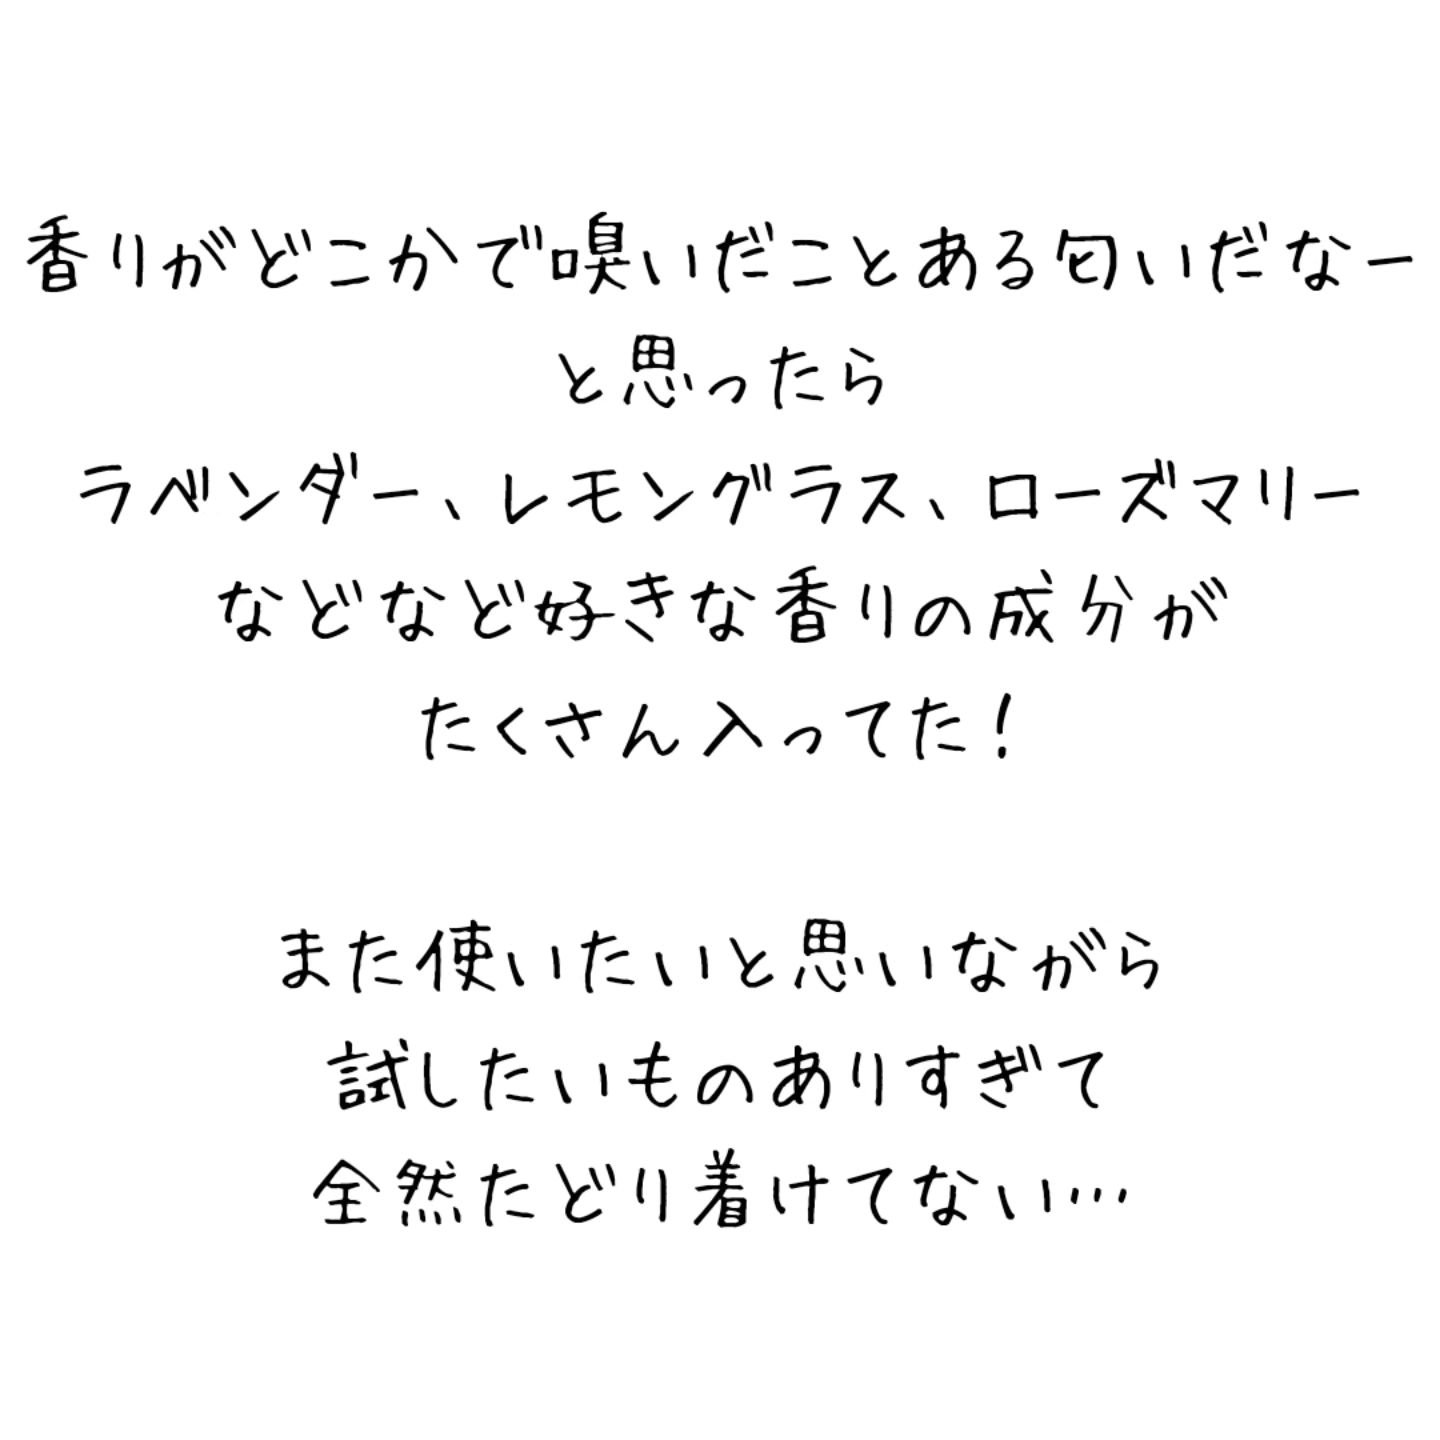 香りがどこかで嗅いだことある匂いだなー
と思ったら
ラベンダー、レモングラス、ローズマリー
などなど好きな香りの成分が
たくさん入ってた！
また使いたいと思いながら
試したいものありすぎて
全然たどり着けてない…